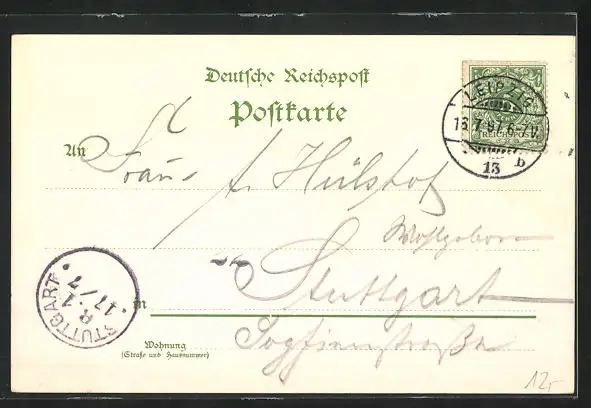 Deutsche Reichspost
Postkarte
An
Frau
Hülshof
Wohlgeboren
in
Stuttgart
Wohnung
(Straße und Hausnummer)
LEIPZIG
13
b
REICHSPOST
STUTTGART
17/7
12,-